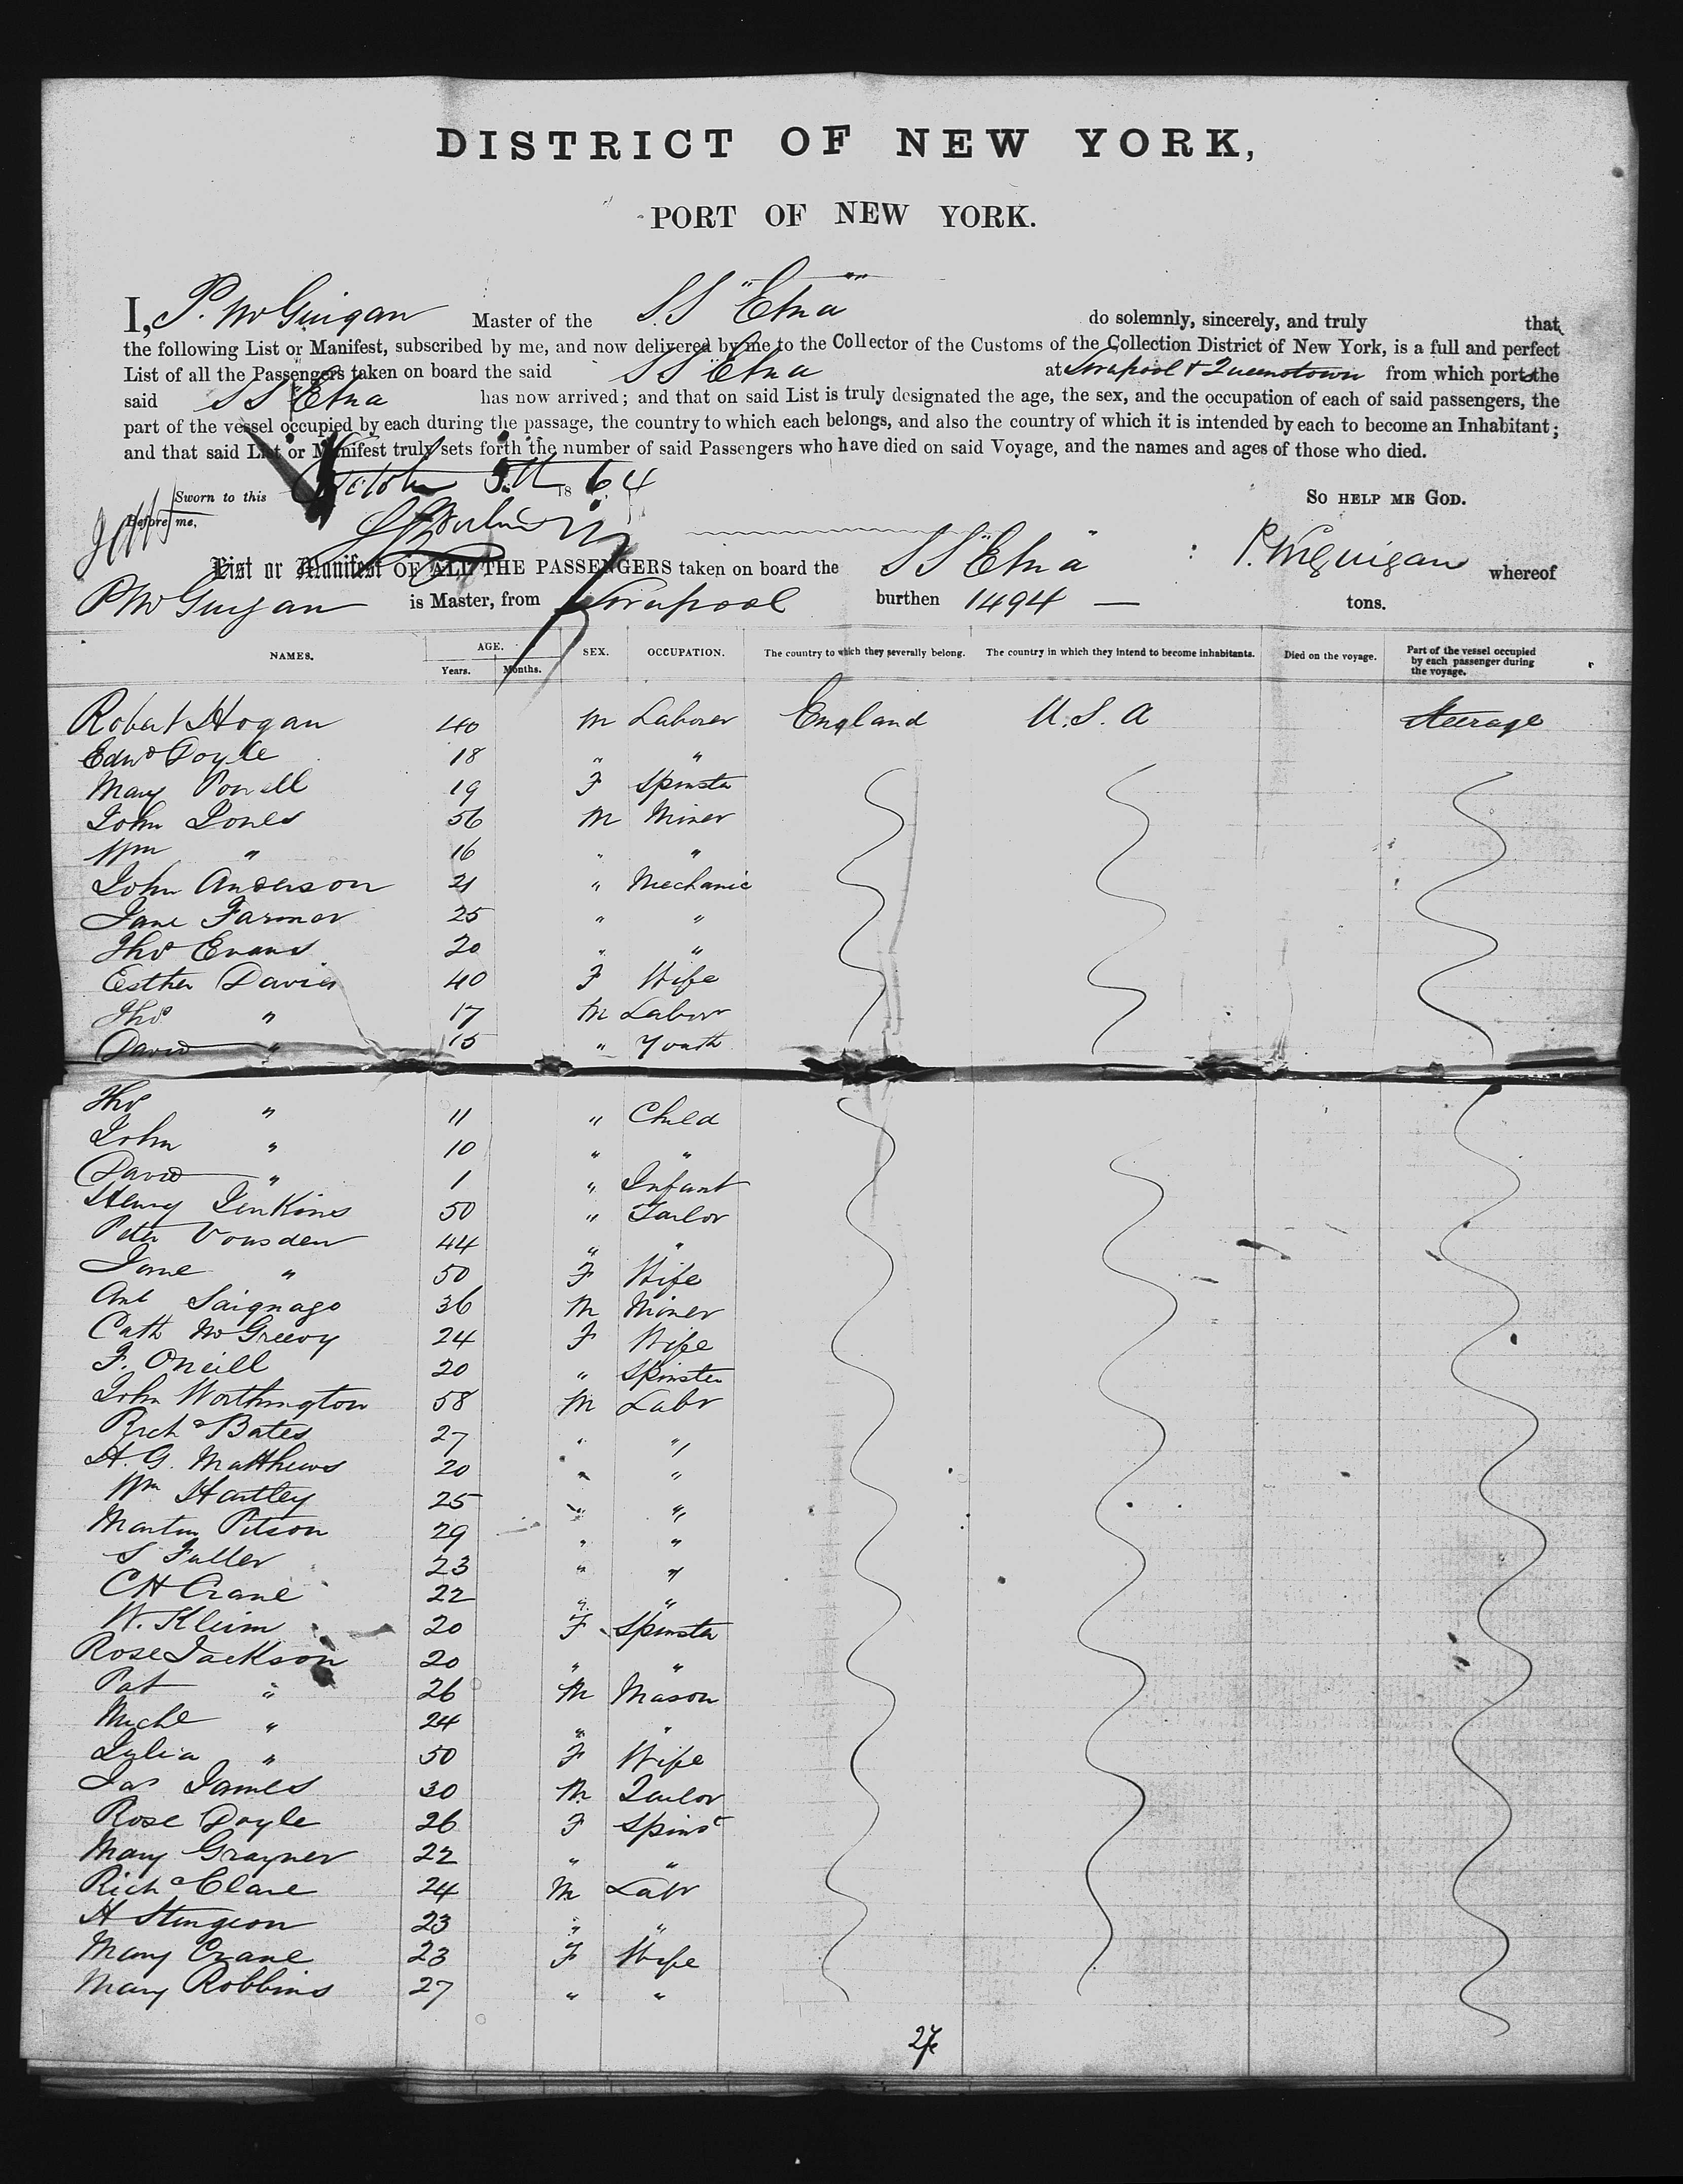 DISTRICT OF NEW YORK,
PORT OF NEW YORK.
I, P. McGuigan Master of the S.S "Etna" do solemnly, sincerely, and truly that
the following List or Manifest, subscribed by me, and now delivered by me to the Collector of the Customs of the Collection District of New York, is a full and perfect
List of all the Passengers taken on board the said SS Etna at Liverpool & Queenstown from which ports the
said SS Etna has now arrived; and that on said List is truly designated the age, the sex, and the occupation of each of said passengers, the
part of the vessel occupied by each during the passage, the country to which each belongs, and also the country of which it is intended by each to become an Inhabitant;
and that said List or Manifest truly sets forth the number of said Passengers who have died on said Voyage, and the names and ages of those who died.
Sworn to this October 5th 1864 So help me God.
Before me,
List or Manifest OF ALL THE PASSENGERS taken on board the SS "Etna" P. McGuigan whereof
P McGuigan is Master, from Liverpool burthen 1494 — tons.
NAMES. AGE. Years. Months. SEX. OCCUPATION. The country to which they severally belong. The country in which they intend to become inhabitants. Died on the voyage. Part of the vessel occupied by each passenger during the voyage.
Robert Hogan 40 M Laborer England U.S.A Steerage
Edwd Doyle 18 " "
Mary Powell 19 F Spinster
John Jones 56 M Miner
Wm " 16 " "
John Anderson 21 " Mechanic
Jane Farmer 25 " "
Thos Evans 20 " "
Esther Davies 40 F Wife
Thos " 17 M Labour
David " 15 " Youth
Thos " 11 " Child
John " 10 " "
David " 1 " Infant
Henry Jenkins 50 " Tailor
Peter Vousden 44 " "
Jane " 50 F Wife
Ant Saignago 36 M Miner
Cath McGreevy 24 F Wife
F. ONeill 20 " Spinster
John Worthington 58 M Labr
Richd Bates 27 " "
H. G. Matthews 20 " "
Wm Hartley 25 " "
Martin Pitson 29 " "
S Fuller 23 " "
C H Crane 22 " "
W. Kleim 20 F Spinster
Rose Jackson 20 " "
Pat " 26 M Mason
Michl " 24 " "
Julia " 50 F Wife
Jas James 30 M Tailor
Rose Doyle 26 F Spinst
Mary Grayner 22 " "
Richd Clare 24 M Labr
H Sturgeon 23 " "
Mary Crane 23 F Wife
Mary Robbins 27 " "